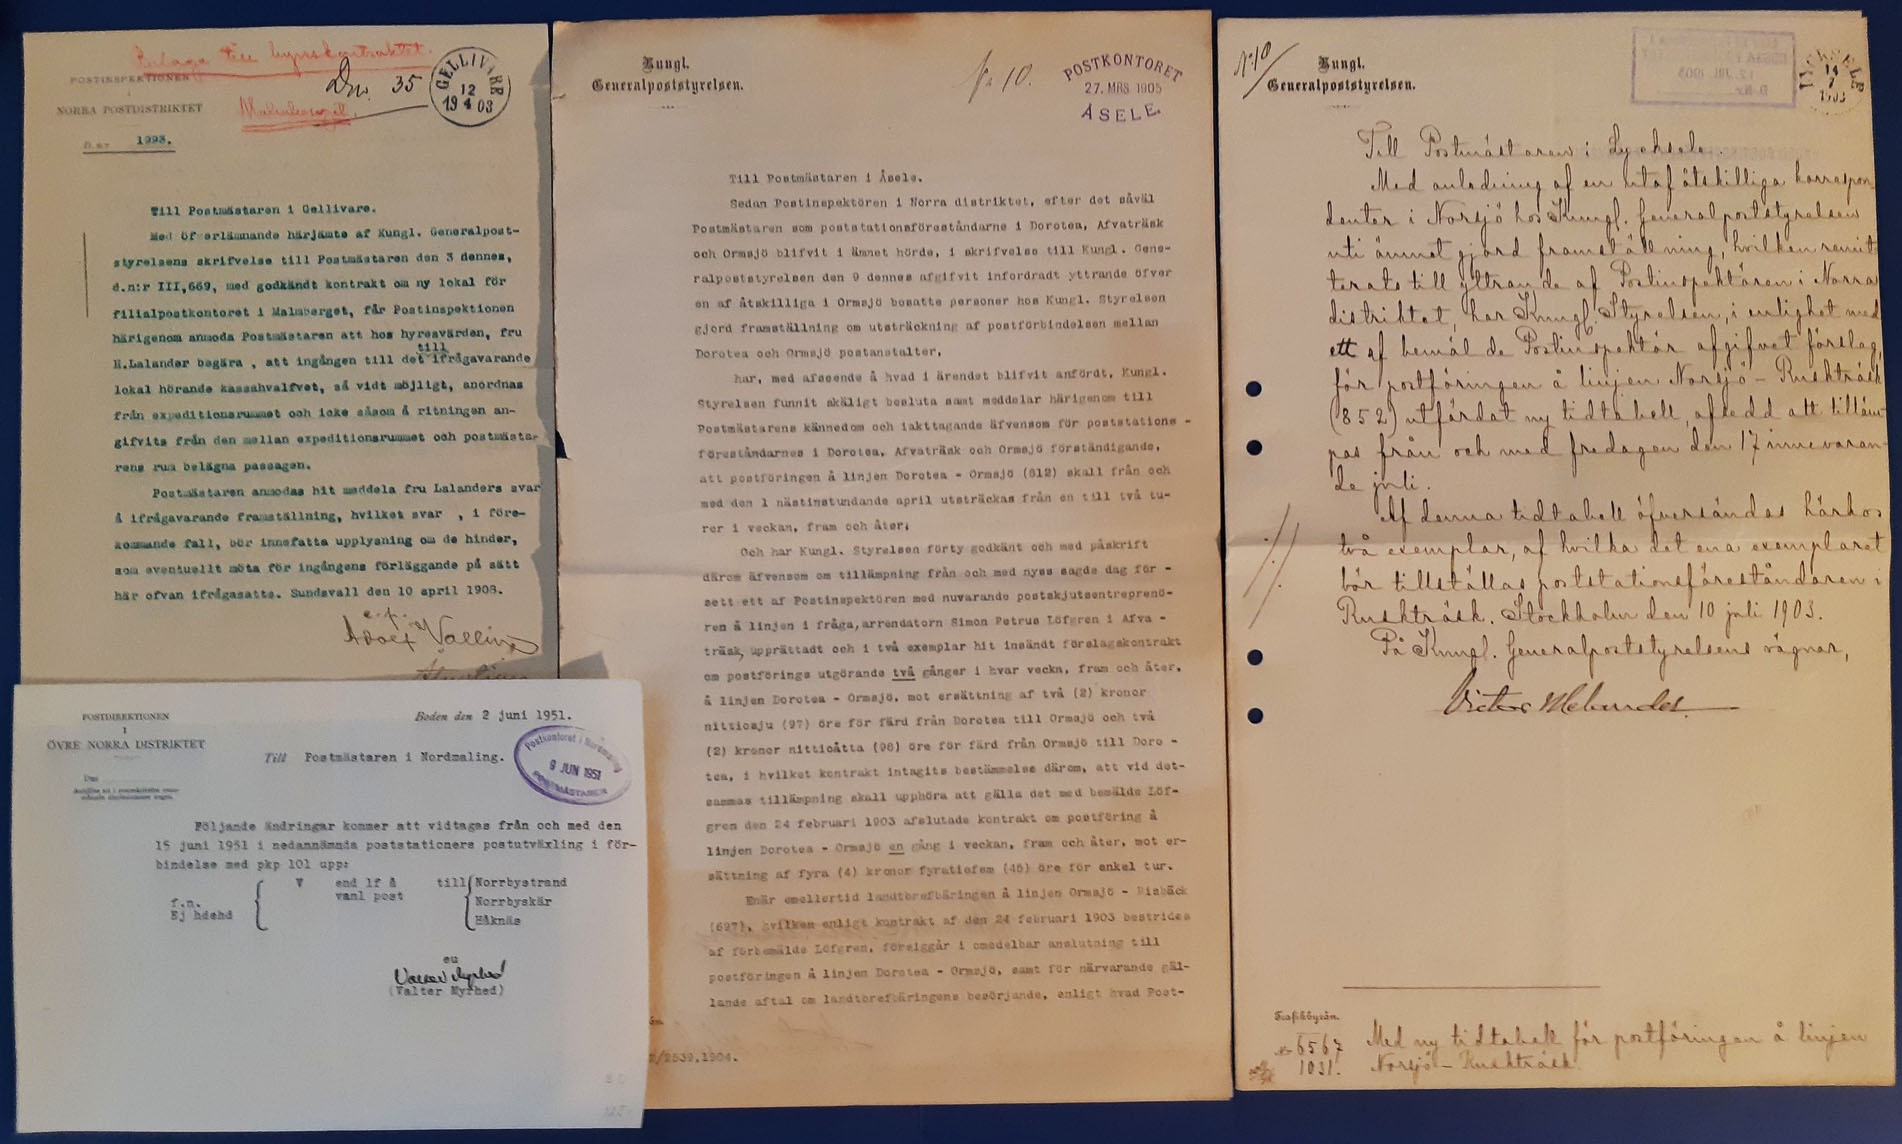 Bilaga till hyreskontraktet.
POSTINSPEKTIONEN
I
NORRA POSTDISTRIKTET
Malmberget.
Dnr. 35
GELLIVARE
12
19 4 08
D. n:r 1993.
Till Postmästaren i Gellivare.
Med öfverlämnande härjämte af Kungl. Generalpost-
styrelsens skrifvelse till Postmästaren den 3 dennes,
d.n:r III,669, med godkändt kontrakt om ny lokal för
filialpostkontoret i Malmberget, får Postinspektionen
härigenom anmoda Postmästaren att hos hyresvärden, fru
H.Lalander begära , att ingången till det till ifrågavarande
lokal hörande kassahvalfvet, så vidt möjligt, anordnas
från expeditionsrummet och icke såsom å ritningen an-
gifvits från den mellan expeditionsrummet och postmästa-
rens rum belägna passagen.
Postmästaren anmodas hit meddela fru Lalanders svar
å ifrågavarande framställning, hvilket svar , i före-
kommande fall, bör innefatta upplysning om de hinder,
som eventuellt möta för ingångens förläggande på sätt
här ofvan ifrågasatts. Sundsvall den 10 april 1908.
e. f.
Adolf Vallin
POSTDIREKTIONEN
I
ÖVRE NORRA DISTRIKTET
Dnr
Boden den 2 juni 1951.
Till Postmästaren i Nordmaling.
Postkontoret i Nordmaling
9 JUN 1951
POSTMÄSTAREN
Följande ändringar kommer att vidtagas från och med den
15 juni 1951 i nedannämnda poststationers postutväxling i för-
bindelse med pkp 101 upp:
f.n. V end lf å till Norrbystrand
Ej hdehd vanl post Norrbyskär
Håknäs
eu
Valter Myrhed
(Valter Myrhed)
Kungl.
Generalpoststyrelsen.
No 10.
POSTKONTORET
27. MRS 1905
ÅSELE
Till Postmästaren i Åsele.
Sedan Postinspektören i Norra distriktet, efter det såväl
Postmästaren som poststationsföreståndarne i Dorotea, Afvaträsk
och Ormsjö blifvit i ämnet hörde, i skrifvelse till Kungl. Gene-
ralpoststyrelsen den 9 dennes afgifvit infordradt yttrande öfver
en af åtskilliga i Ormsjö bosatte personer hos Kungl. Styrelsen
gjord framställning om utsträckning af postförbindelsen mellan
Dorotea och Ormsjö postanstalter,
har, med afseende å hvad i ärendet blifvit anfördt, Kungl.
Styrelsen funnit skäligt besluta samt meddelar härigenom till
Postmästarens kännedom och iakttagande äfvensom för poststations -
föreståndarnes i Dorotea, Afvaträsk och Ormsjö förständigande,
att postföringen å linjen Dorotea - Ormsjö (812) skall från och
med den 1 nästinstundande april utsträckas från en till två tu-
rer i veckan, fram och åter;
Och har Kungl. Styrelsen förty godkänt och med påskrift
därom äfvensom om tillämpning från och med nyss sagde dag för -
sett ett af Postinspektören med nuvarande postskjutsentreprenö-
ren å linjen i fråga, arrendatorn Simon Petrus Löfgren i Afva -
träsk, upprättadt och i två exemplar hit insändt förslagskontrakt
om postförings utgörande två gånger i hvar vecka, fram och åter,
å linjen Dorotea - Ormsjö, mot ersättning af två (2) kronor
nittiosju (97) öre för färd från Dorotea till Ormsjö och två
(2) kronor nittioåtta (98) öre för färd från Ormsjö till Doro -
tea, i hvilket kontrakt intagits bestämmelse därom, att vid det-
sammas tillämpning skall upphöra att gälla det med bemälde Löf-
gren den 24 februari 1903 afslutade kontrakt om postföring å
linjen Dorotea - Ormsjö en gång i veckan, fram och åter, mot er-
sättning af fyra (4) kronor fyratiofem (45) öre för enkel tur.
Enär emellertid landtbrefbäringen å linjen Ormsjö - Risbäck
(697), hvilken enligt kontrakt af den 24 februari 1903 bestrides
af förbemälde Löfgren, försiggår i omedelbar anslutning till
postföringen å linjen Dorotea - Ormsjö, samt för närvarande gäl-
lande aftal om landtbrefbäringens besörjande, enligt hvad Post-
/2539,1904.
No 10
Kungl.
Generalpoststyrelsen.
LYCKSELE
14
7
1903
Till Postmästaren i Lycksele.
Med anledning af en utaf åtskilliga korrespon-
denter i Norsjö hos Kungl. Generalpoststyrelsen
uti ämnet gjord framställning, hvilken remit-
terats till yttrande af Postinspektören i Norra
distriktet, har Kungl. Styrelsen, i enlighet med
ett af bemälde Postinspektör afgifvet förslag,
för postföringen å linjen Norsjö - Ruskträsk
(852) utfärdat ny tidtabell, afsedd att tilläm-
pas från och med fredagen den 17 innevaran-
de juli.
Af denna tidtabell öfversändas härhos
två exemplar, af hvilka det ena exemplaret
bör tillställas poststationsföreståndaren i
Ruskträsk. Stockholm den 10 juli 1903.
På Kungl. Generalpoststyrelsens vägnar,
Victor Melander
Trafikbyrån.
No 6567
1031.
Med ny tidtabell för postföringen å linjen
Norsjö - Ruskträsk.